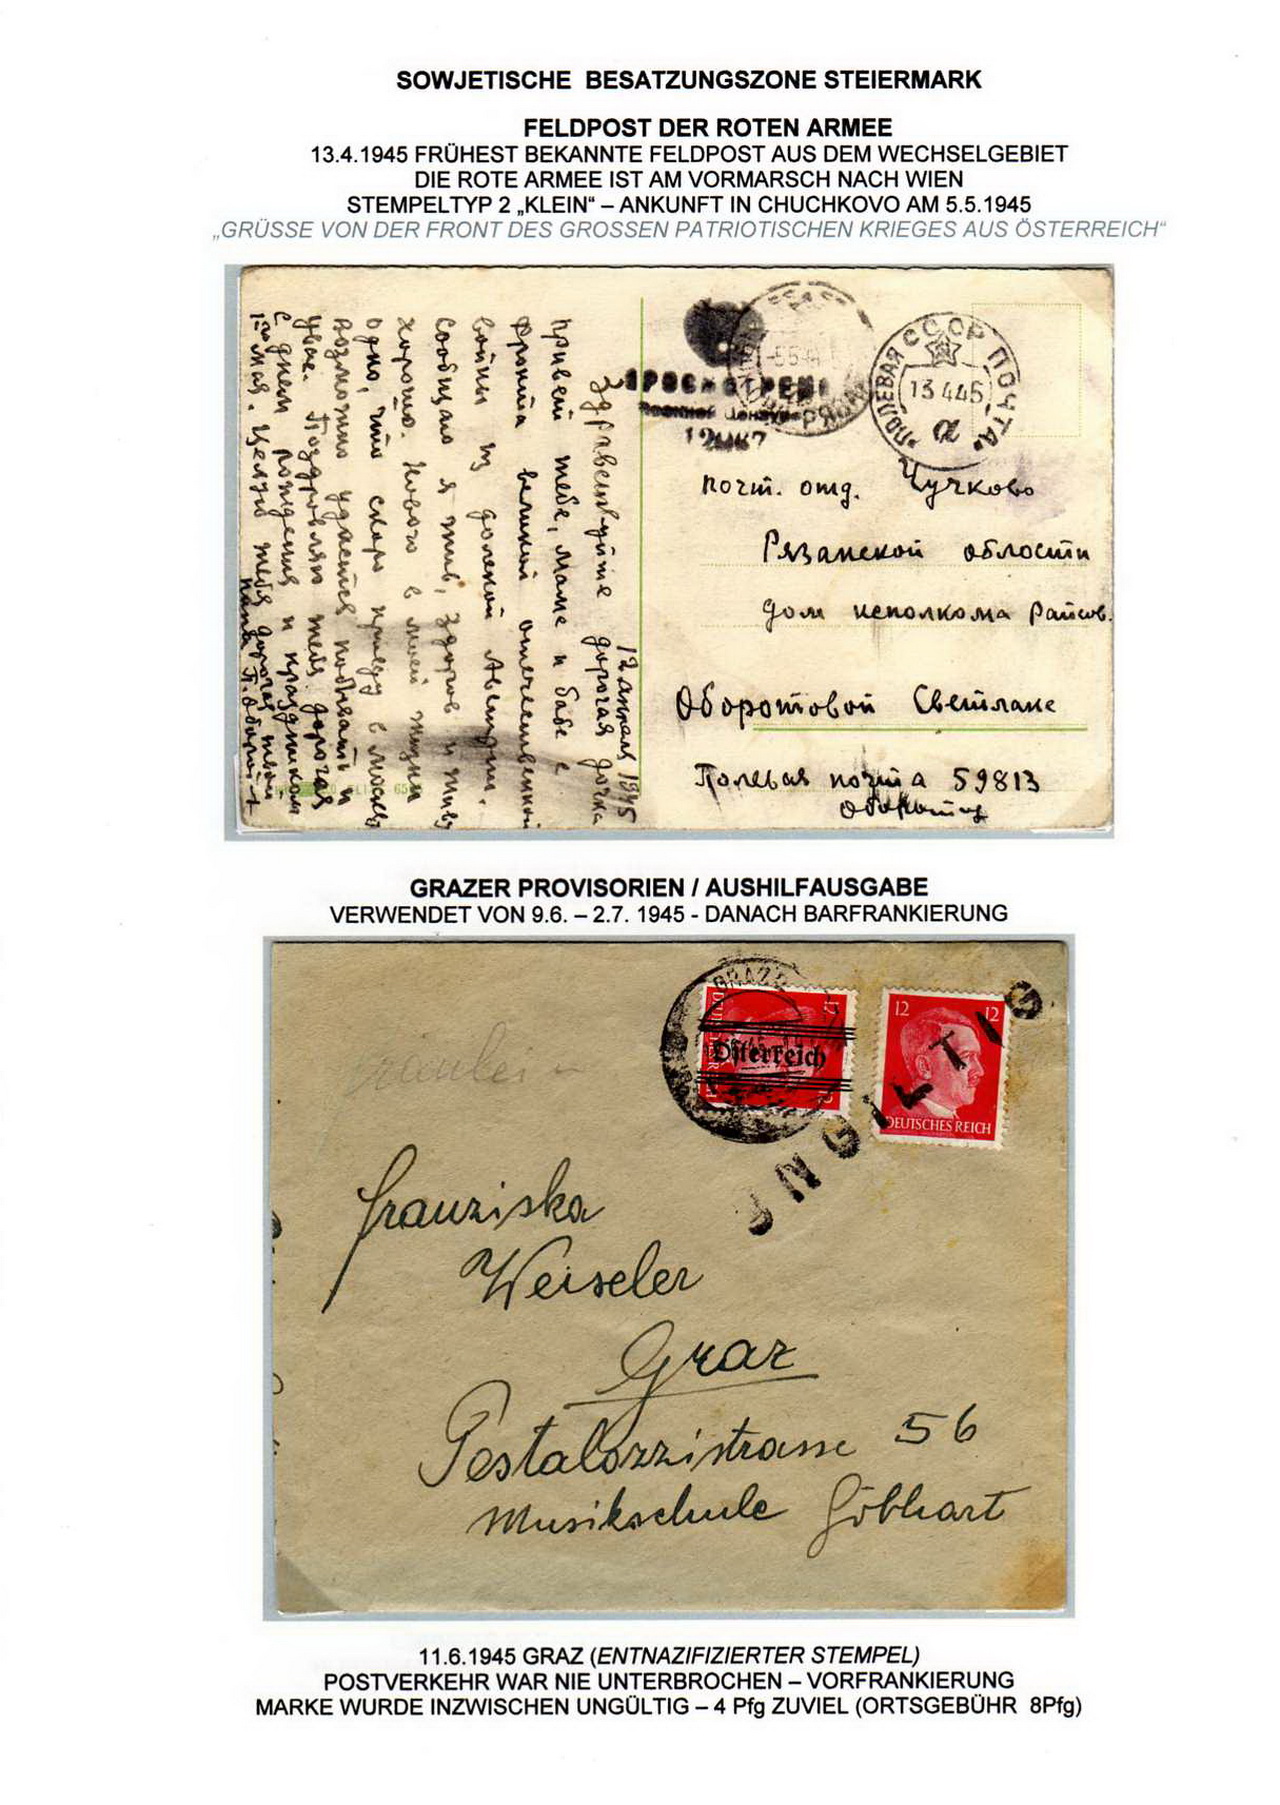 SOWJETISCHE BESATZUNGSZONE STEIERMARK
FELDPOST DER ROTEN ARMEE
13.4.1945 FRÜHEST BEKANNTE FELDPOST AUS DEM WECHSELGEBIET
DIE ROTE ARMEE IST AM VORMARSCH NACH WIEN
STEMPELTYP 2 „KLEIN“ – ANKUNFT IN CHUCHKOVO AM 5.5.1945
„GRÜSSE VON DER FRONT DES GROSSEN PATRIOTISCHEN KRIEGES AUS ÖSTERREICH“
12 апреля 1945
Здравствуйте дорогая дочка
привет тебе, маме и бабе с
фронта великой отечественной
войны из далекой Австрии.
Сообщаю я жив, здоров и живу
хорошо. Нового в моей жизни
одно, что скоро приеду в Москву
возможно удастся побывать и
у вас. Поздравляю тебя дорогая
с днем рождения и праздником
1го мая. Целую тебя дорогая твой
папа
ПРОСМОТРЕНО
Военной Цензурой
12087
ПОЛЕВАЯ СССР ПОЧТА
13 4 45
а
почт. отд. Чучково
Рязанской области
дом исполкома Райсов.
Оборотовой Светлане
Полевая почта 59813
GRAZER PROVISORIEN / AUSHILFAUSGABE
VERWENDET VON 9.6. – 2.7. 1945 - DANACH BARFRANKIERUNG
GRAZ
Österreich
12 12
DEUTSCHES REICH
UNGILTIG
Fräulein
Franziska
Weiseler
Graz
Pestalozzistrasse 56
Musikschule Göbhart
11.6.1945 GRAZ (ENTNAZIFIZIERTER STEMPEL)
POSTVERKEHR WAR NIE UNTERBROCHEN – VORFRANKIERUNG
MARKE WURDE INZWISCHEN UNGÜLTIG – 4 Pfg ZUVIEL (ORTSGEBÜHR 8Pfg)